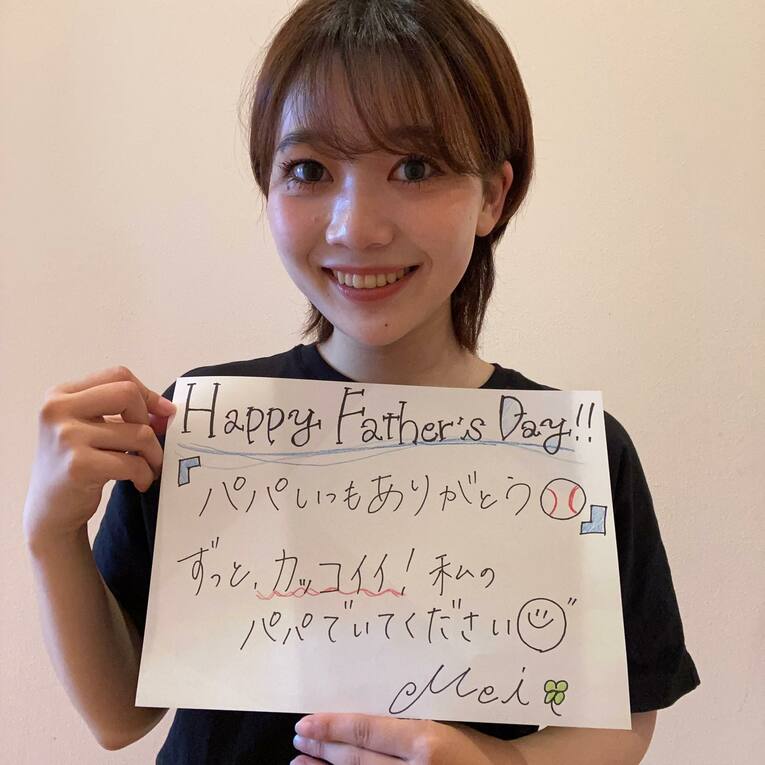 Happy Father's Day!!
『パパいつもありがとう』
ずっと、カッコイイ!私の
パパでいてください
Mei